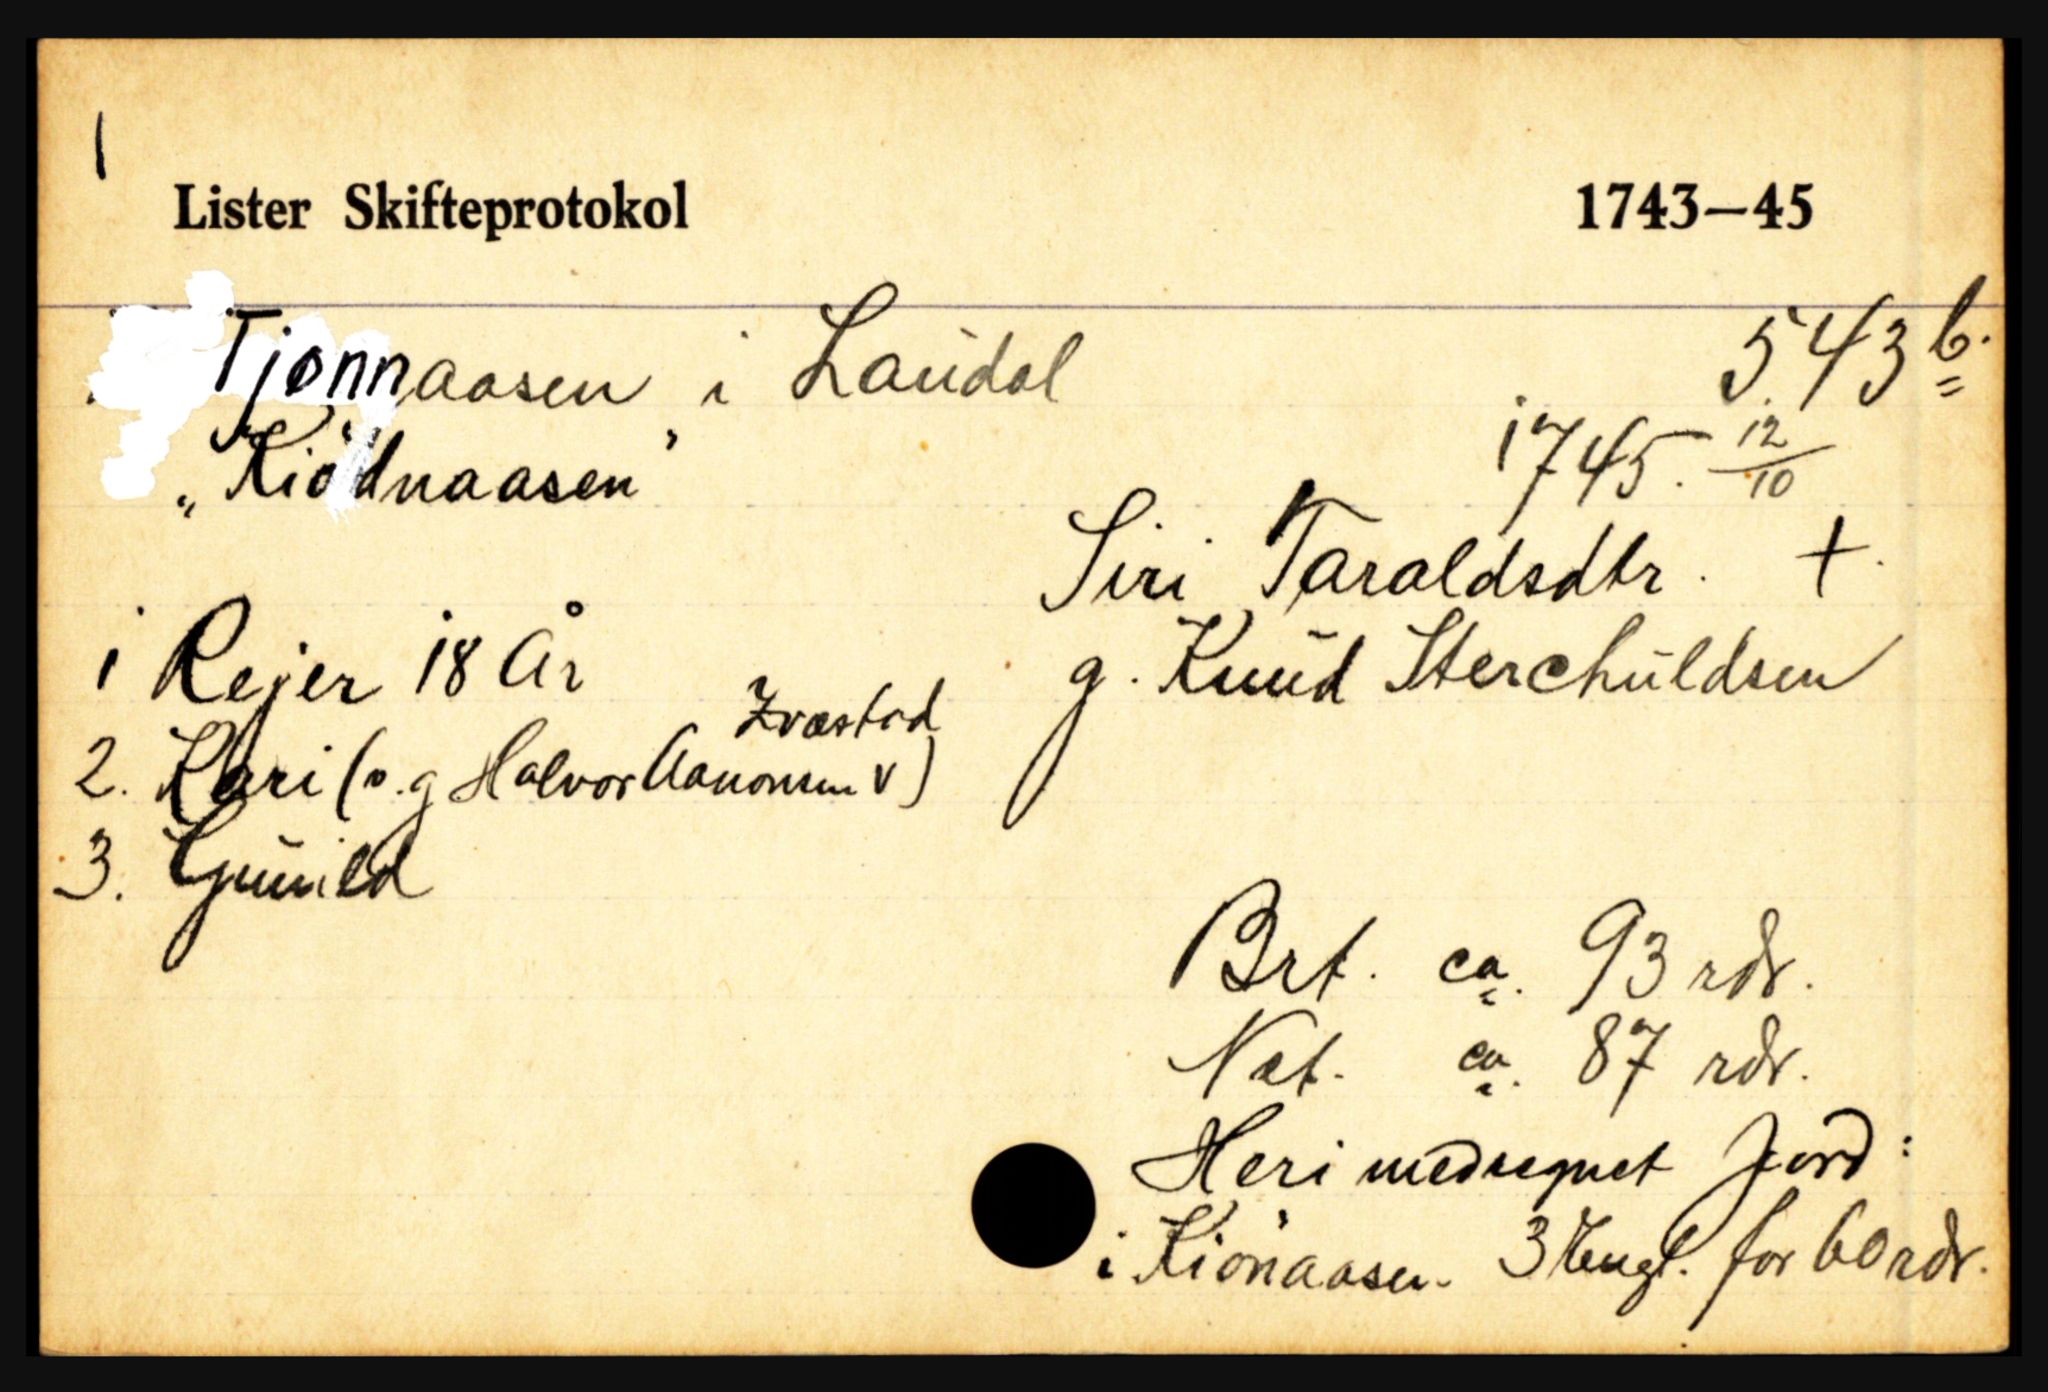 1
Lister Skifteprotokol 1743—45
Tjonnaasen i Laudal 543 b.
„Kiödnaasen" 1745. 12/10
Siri Taraldsdtr. +.
1 Rejer 18 År g. Knud Sterchuldsen
2. Kari (v. g Halvor Aanonsen v)
3. Gunild
Brt. ca. 93 rdr.
Net. ca. 87 rdr.
Heri medregnet Jord:
i Kiönaasen. 3 Engl. for 60 rdr.